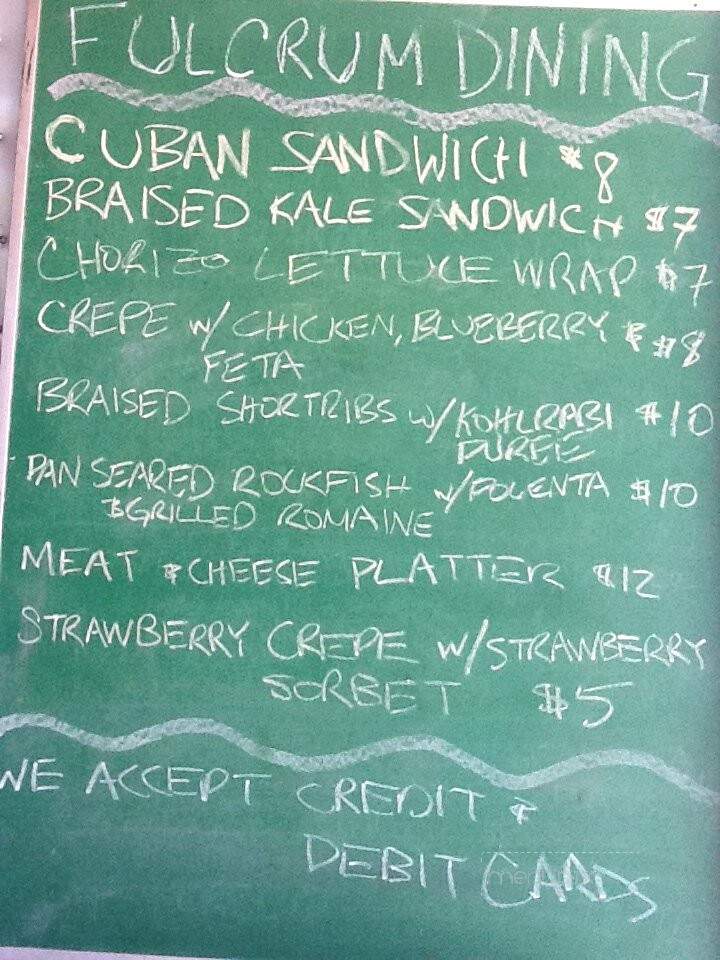 FULCRUM DINING
CUBAN SANDWICH $8
BRAISED KALE SANDWICH $7
CHORIZO LETTUCE WRAP $7
CREPE w/ CHICKEN, BLUEBERRY & $8
FETA
BRAISED SHORTRIBS w/KOHLRABI $10
PUREE
PAN SEARED ROCKFISH w/POLENTA $10
& GRILLED ROMAINE
MEAT & CHEESE PLATTER $12
STRAWBERRY CREPE w/STRAWBERRY
SORBET $5
WE ACCEPT CREDIT &
DEBIT CARDS